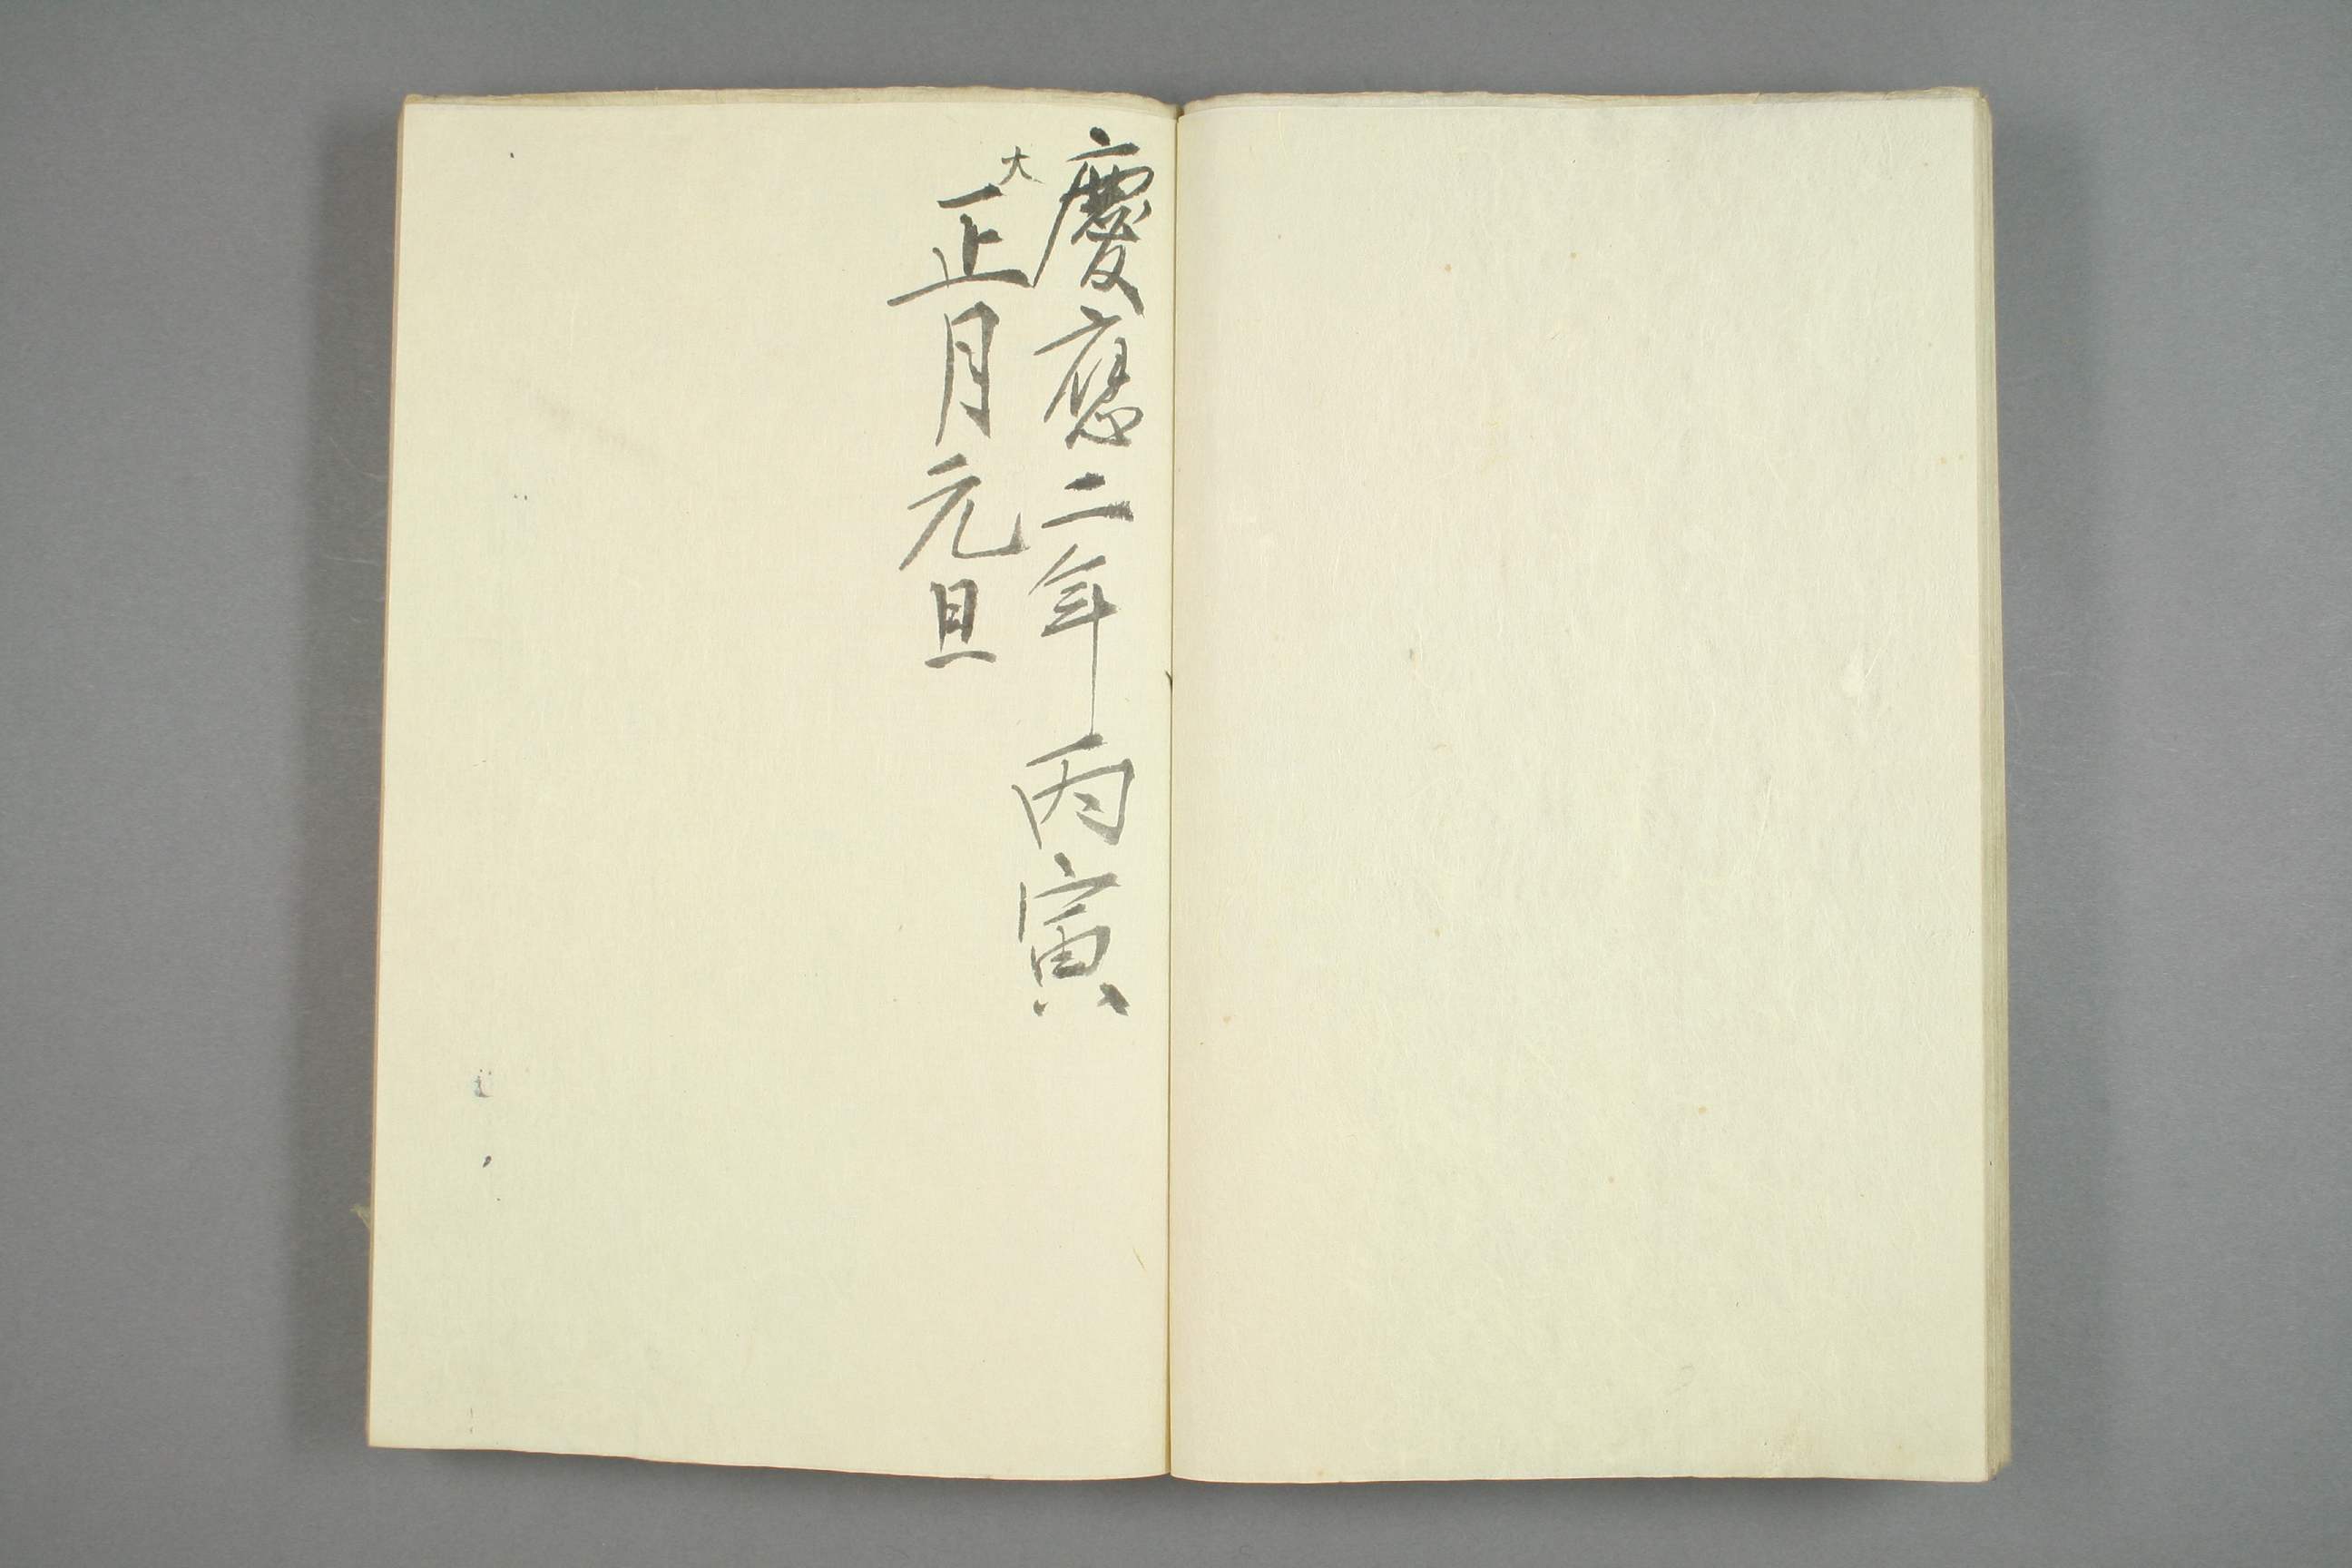 慶應二年丙寅
大
正月元旦